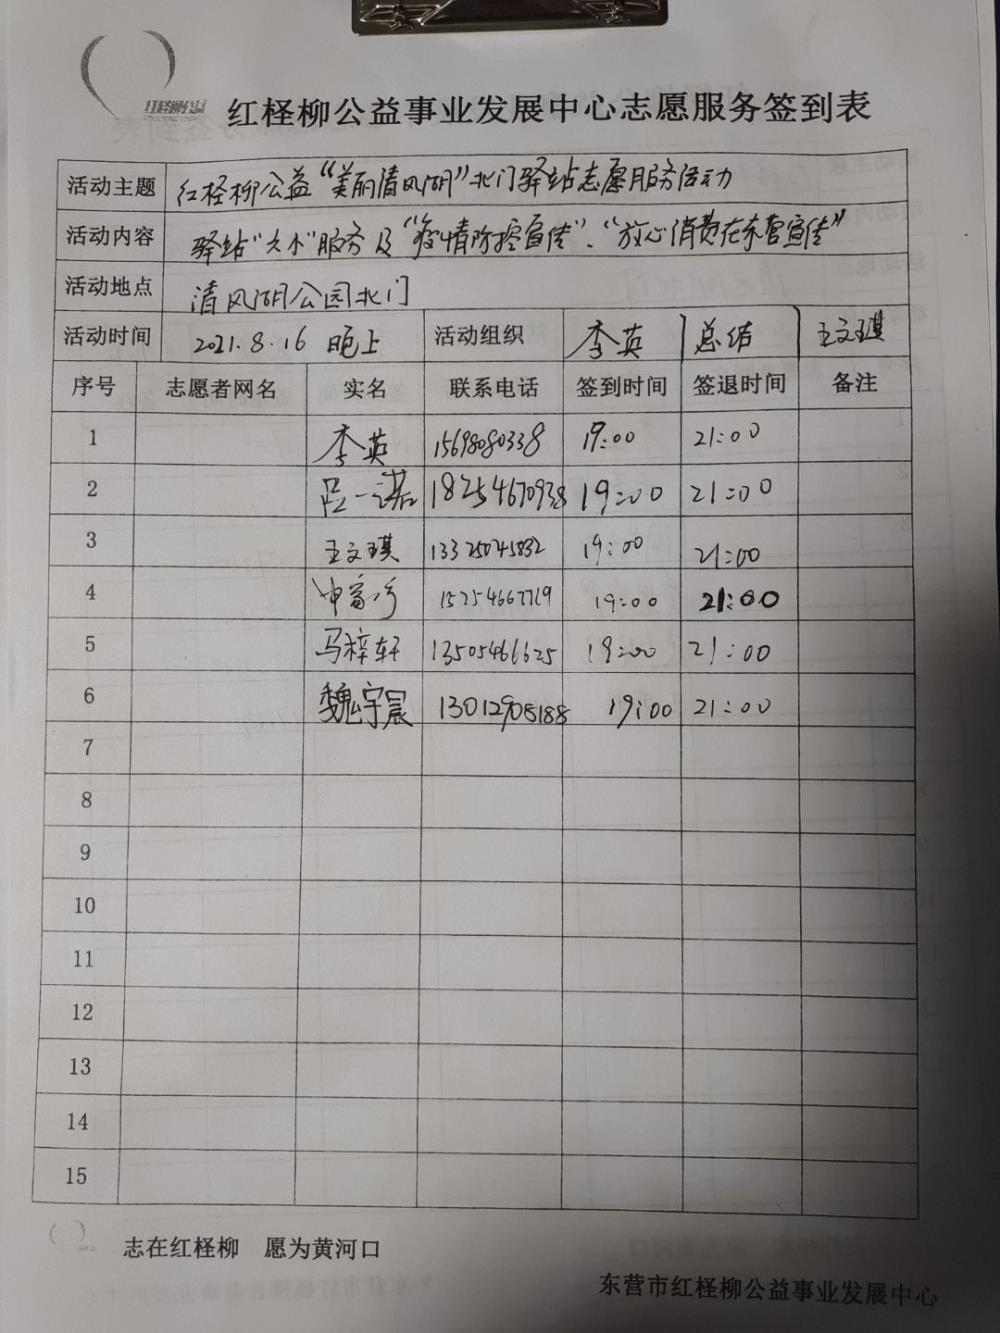 红柽柳公益
红柽柳公益事业发展中心志愿服务签到表
活动主题 红柽柳公益“美丽清风湖”北门驿站志愿服务活动
活动内容 驿站“大小”服务及“疫情防控宣传”、“放心消费在东营宣传”
活动地点 清风湖公园北门
活动时间 2021.8.16 晚上 活动组织 李英 总结 王文琪
序号 志愿者网名 实名 联系电话 签到时间 签退时间 备注
1 李英 15698080338 19:00 21:00
2 吕一诺 18254670938 19:00 21:00
3 王文琪 13325045832 19:00 21:00
4 申富 15254667719 19:00 21:00
5 马梓轩 13505466625 19:00 21:00
6 魏宇宸 13012905188 19:00 21:00
7
8
9
10
11
12
13
14
15
志在红柽柳 愿为黄河口
东营市红柽柳公益事业发展中心